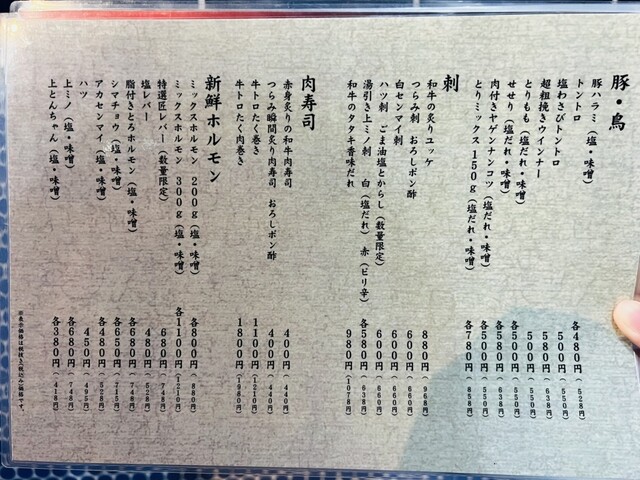 豚・鳥
豚ハラミ（塩・味噌） 各480円（528円）
トントロ 500円（550円）
塩わさびトントロ 580円（638円）
超粗挽きウインナー 500円（550円）
とりもも（塩だれ・味噌） 各500円（550円）
せせり（塩だれ・味噌） 各500円（550円）
肉付きヤゲンナンコツ（塩だれ・味噌） 各500円（550円）
とりミックス150g（塩だれ・味噌） 各780円（858円）
刺
和牛の炙りユッケ 880円（968円）
つらみ刺 おろしポン酢 600円（660円）
白センマイ刺 600円（660円）
ハツ刺 ごま油塩とからし（数量限定） 600円（660円）
湯引き上ミノ刺 白（塩だれ） 赤（ピリ辛） 各580円（638円）
和牛のタタキ香味だれ 980円（1078円）
肉寿司
赤身炙りの和牛肉寿司 400円（440円）
つらみ瞬間炙り肉寿司 おろしポン酢 400円（440円）
牛トロたく巻き 1100円（1210円）
牛トロたく肉巻き 1800円（1980円）
新鮮ホルモン
ミックスホルモン 200g（塩・味噌） 各800円（880円）
ミックスホルモン 300g（塩・味噌） 各1100円（1210円）
特選匠レバー（数量限定） 680円（748円）
塩レバー 480円（528円）
脂付きとろホルモン（塩・味噌） 各680円（748円）
シマチョウ（塩・味噌） 各650円（715円）
アカセンマイ（塩・味噌） 各480円（528円）
ハツ 450円（495円）
上ミノ（塩・味噌） 各680円（748円）
上とんちゃん（塩・味噌） 各380円（418円）
※表示価格は税抜き（税込み）価格です。